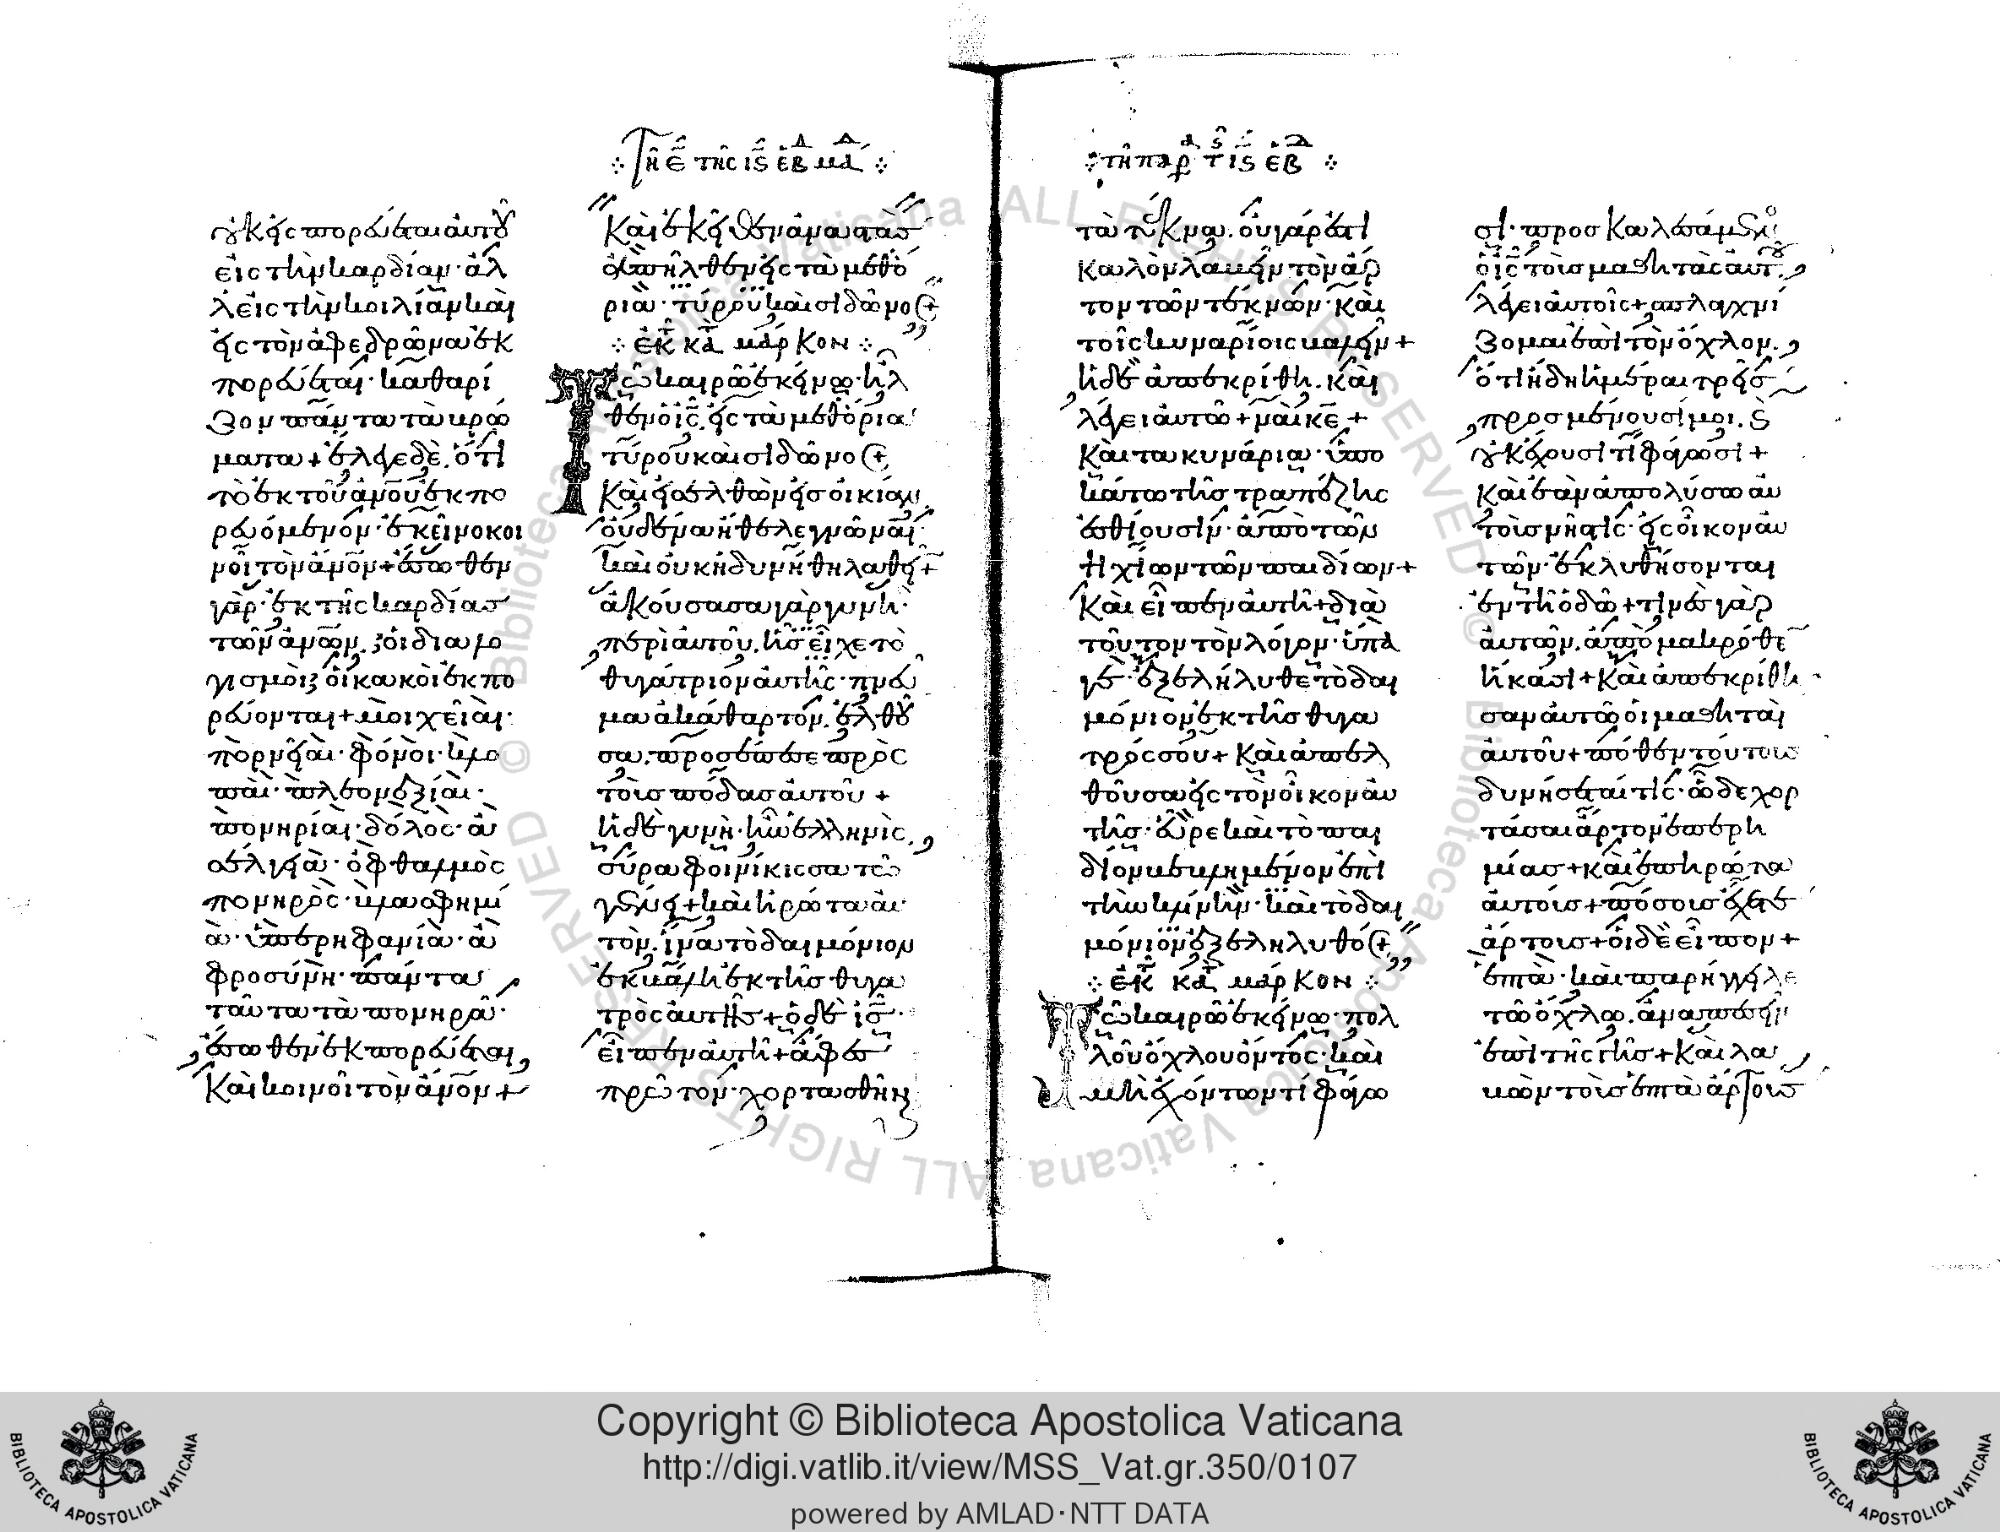 Τῆ ε̄ τῆς ις̄ ἑβδομάδ
οὐκ εἰσπορεύεται αὐτοῦ
εἰς τὴν καρδίαν· ἀλ
λ' εἰς τὴν κοιλίαν καὶ
εἰς τὸν ἀφεδρῶνα ἐκ
πορεύεται· καθαρί
ζον πάντα τὰ βρώ
ματα + ἔλεγε δὲ. ὅτι
τὸ ἐκ τοῦ ἀνου ἐκπο
ρευόμενον· ἐκεῖνο κοι
νοῖ τὸν ἄνον + ἔσωθεν
γὰρ· ἐκ τῆς καρδίας
τῶν ἀνων. οἱ διαλο
γισμοὶ οἱ κακοὶ ἐκπο
ρεύονται + μοιχεῖαι·
πορνεῖαι· φόνοι· κλο
παί· πλεονεξίαι·
πονηρίαι· δόλος· ἀ
σέλγεια· ὀφθαλμὸς
πονηρὸς· βλασφημί
α· ὑπερηφανία· ἀ
φροσύνη· πάντα
ταῦτα τὰ πονηρὰ·
ἔσωθεν ἐκπορεύεται,
καὶ κοινοῖ τὸν ἄνον +
Καὶ ἐκεῖθεν ἀναστὰς
ἀπῆλθεν εἰς τὰ μεθό
ρια· τύρου καὶ σιδῶνο(ς)
ἐκ κατὰ μάρκον
Τῶ καιρῶ ἐκείνω· ἦλ
θεν ὁ ις̄. εἰς τὰ μεθόρια
τύρου καὶ σιδῶνο(ς)
Καὶ εἰσελθὼν εἰς οἰκίαν,
οὐδένα ἤθελε γνῶναι·
καὶ οὐκ ἠδυνήθη λαθεῖ +
ἀκούσασα γὰρ γυνὴ·
περὶ αὐτοῦ. ἧς εἶχε τὸ
θυγάτριον αὐτῆς· πνευ
μα ἀκάθαρτον. ἐλθοῦ
σα. προσέπεσε πρὸς
τοὺς πόδας αὐτοῦ +
ἡ δὲ γυνὴ· ἦν ἑλληνὶς.
σύρα φοινίκισσα τῶ
γένει + καὶ ἠρώτα αὐ
τὸν. ἵνα τὸ δαιμόνιον
ἐκβάλη ἐκ τῆς θυγα
τρὸς αὐτῆς + ὁ δὲ ις̄·
εἶπεν αὐτῆ + ἄφες
πρῶτον· χορτασθῆναι
τῆ παρ τ ις̄ ἑβδ
τὰ τέκνα. οὐ γάρ ἐστι
καλὸν λαβεῖν τὸν ἄρ
τον τῶν τέκνων· καὶ
τοῖς κυναρίοις βαλεῖν +
ἡ δὲ ἀπεκρίθη. καὶ
λέγει αὐτῶ + ναὶ κε +
καὶ τὰ κυνάρια· ὑπο
κάτω τῆς τραπέζης
ἐσθίουσιν· ἀπὸ τῶν
ψιχίων τῶν παιδίων +
Καὶ εἶπεν αὐτῆ + διὰ
τοῦτον τὸν λόγον· ὕπα
γε· ἐξελήλυθε τὸ δαι
μόνιον ἐκ τῆς θυγα
τρός σου + Καὶ ἀπελ
θοῦσα εἰς τὸν οἶκον αὐ
τῆς· εὗρε καὶ τὸ παι
δίον βεβλημένον ἐπὶ
τὴν κλίνην· καὶ τὸ δαι
μόνιον ἐξεληλυθό(ς)
ἐκ κατὰ μάρκον
Τῶ καιρῶ ἐκείνω· πολ
λοῦ ὄχλου ὄντος· καὶ
μὴ ἐχόντων τί φάγω
σι· προσκαλεσάμενο(ς)
ὁ ις̄ τοὺς μαθητὰς αὐτοῦ,
λέγει αὐτοῖς + σπλαγχνί
ζομαι ἐπὶ τὸν ὄχλον.
ὅτι ἤδη ἡμέραι τρεῖς
προσμένουσί μοι. καὶ
οὐκ ἔχουσι τί φάγωσι +
καὶ ἐὰν ἀπολύσω αὐ
τοὺς νήστις· εἰς οἶκον αὐ
τῶν· ἐκλυθήσονται
ἐν τῆ ὁδῶ + τινὲς γὰρ
αὐτῶν. ἀπὸ μακρόθε
ἥκασι + Καὶ ἀπεκρίθη
σαν αὐτῶ οἱ μαθηταὶ
αὐτοῦ + πόθεν τούτους
δυνήσεταί τίς· ὧδε χορ
τάσαι ἄρτον ἐπ ερη
μίας + καὶ ἐπηρώτα
αὐτούς + πόσους ἔχετε
ἄρτους + οἱ δὲ εἶπον +
ἑπτὰ· καὶ παρήγγειλε
τῶ ὄχλω. ἀναπεσεῖν
ἐπὶ τῆς γῆς + Καὶ λα
βὼν τοὺς ἑπτὰ ἄρτους
Copyright © Biblioteca Apostolica Vaticana
http://digi.vatlib.it/view/MSS_Vat.gr.350/0107
powered by AMLAD·NTT DATA